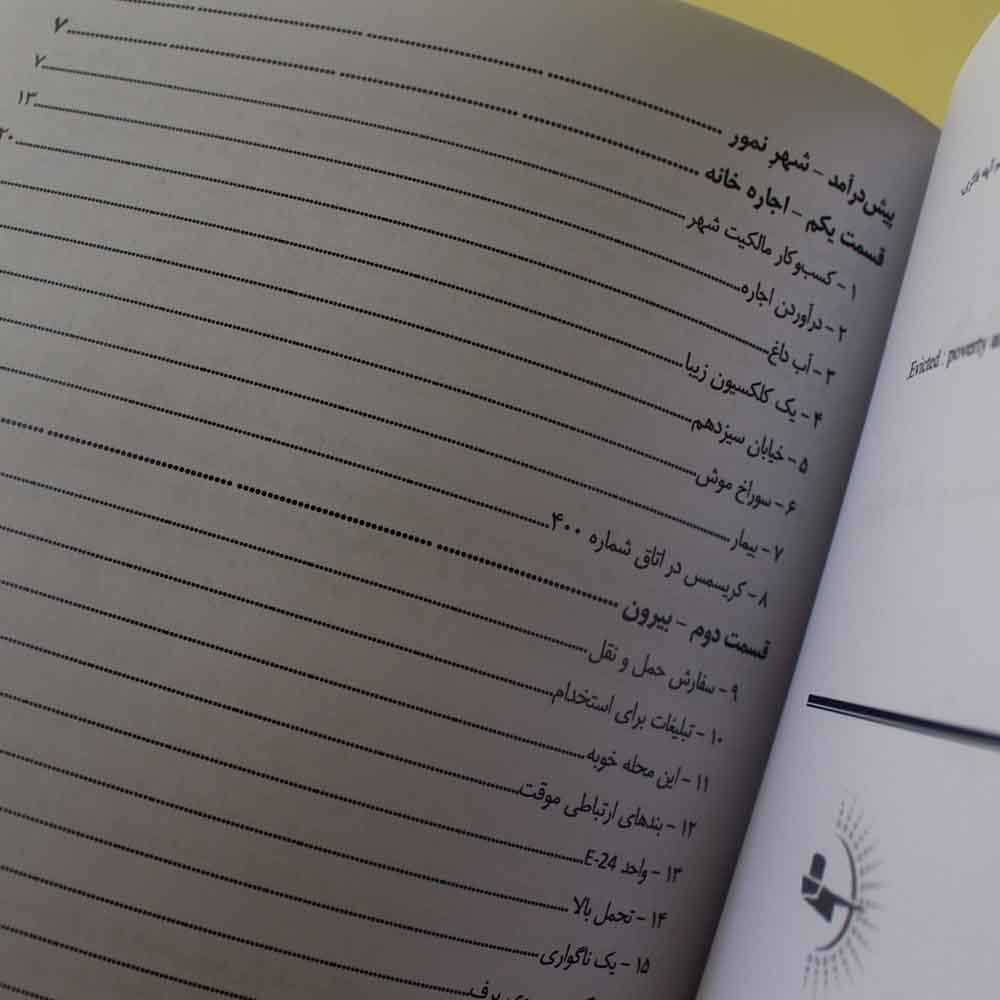 پیش‌درآمد – شهرِ نمور
قسمت یکم – اجاره خانه ۷
۱ – کسب‌وکار مالکیت شهر ۷
۲ – درآوردن اجاره ۱۳
۳ – آب داغ ۲۰
۴ – یک کلکسیون زیبا
۵ – خیابان سیزدهم
۶ – سوراخ موش
۷ – بیمار
۸ – کریسمس در اتاق شماره ۴۰۰
قسمت دوم – بیرون
۹ – سفارش حمل و نقل
۱۰ – تبلیغات برای استخدام
۱۱ – این محله خوبه
۱۲ – بندهای ارتباطی موقت
۱۳ – واحد E-24
۱۴ – تحمل بالا
۱۵ – یک ناگواری
برف
Evicted : poverty